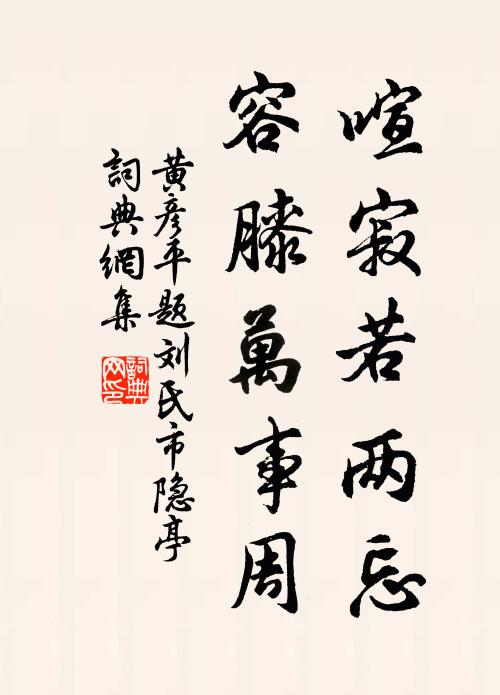 喧寂若两忘
容膝萬事周
黄彦平题刘氏市隐亭
詞典網集
詞典
网印